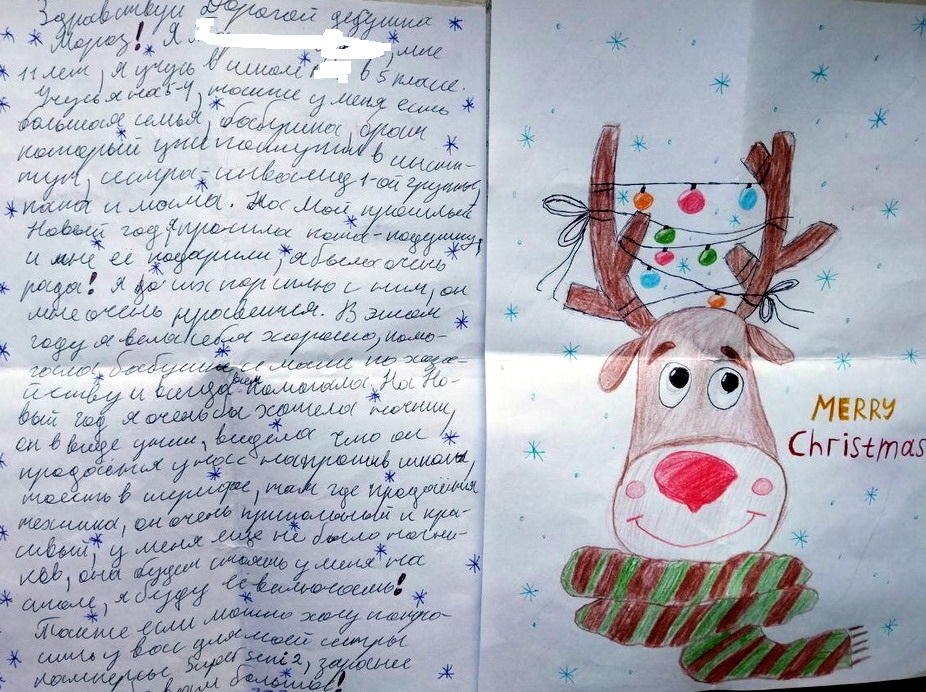 Здравствуй Дорогой дедушка
Мороз! Я мне
11 лет, я учусь в школе в 5 классе.
Учусь я на 5-4, также у меня есть
большая семья, бабушка, брат
который уже поступил в инсти-
тут, сестра-инвалид 1-ой группы,
папа и мама. На мой прошлый
Новый год я просила кота-подушку,
и мне её подарили, я была очень
рада! Я до сих пор сплю с ним, он
мне очень нравится. В этом
году я вела себя хорошо, помо-
гала бабушке и маме по хозя-
йству и всегда всем помогала. На Но-
вый год я очень бы хотела ночник,
он в виде уточки, видела что он
продаётся у нас напротив школы,
тоесть в шерифе, там где продаётся
техника, он очень прикольный и кра-
сивый, у меня ещё не было ночни-
ков, она будет стоять у меня на
столе, я буду её включать!
Также если можно хочу попро-
сить у вас для моей сестры
памперсы Super Seni 2, заранее
вам большое!
MERRY
Christmas